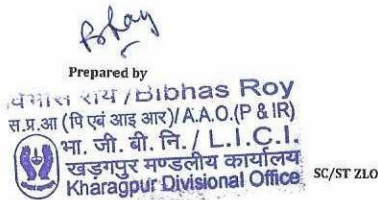 Prepared by
राय / Bibhas Roy
स.प्र.आ (पि एवं आइ आर)/ A.A.O.(P & IR)
भा. जी. बी. नि. / L.I.C.I.
खड़गपुर मण्डलीय कार्यालय
Kharagpur Divisional Office
SC/ST ZLO